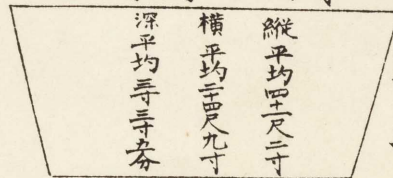 縱平均四十一尺二寸
橫平均二十四尺九寸
深平均三寸三寸五分